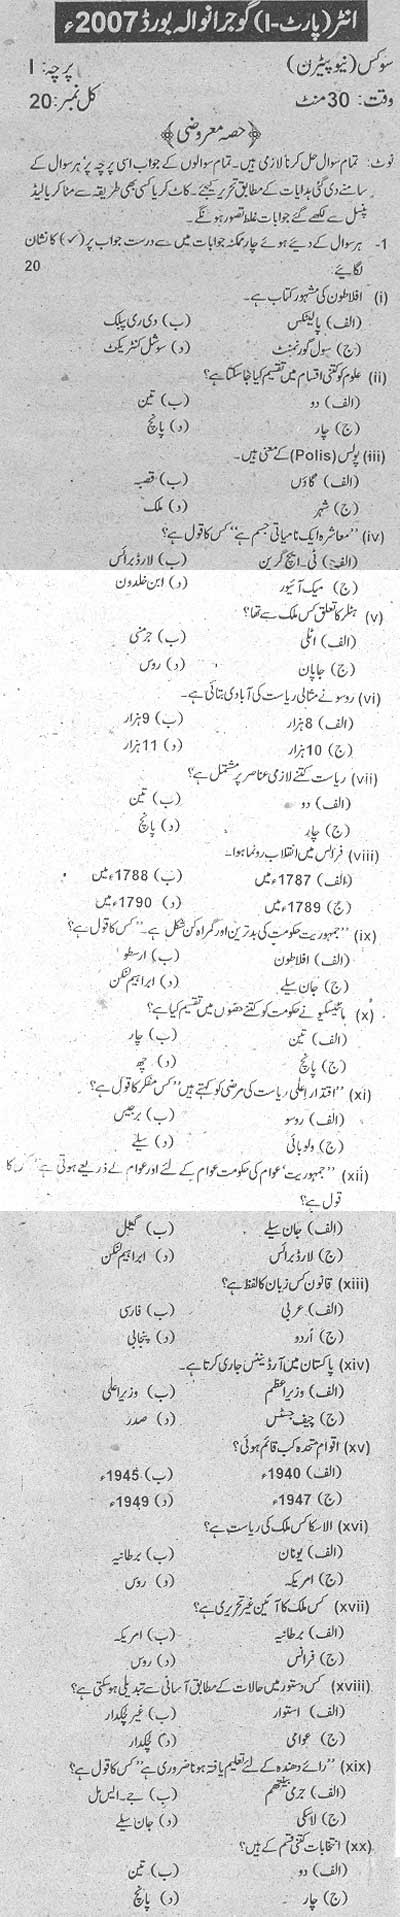 انٹر (پارٹ-I) گوجرانوالہ بورڈ 2007ء
سوکس (نیو پیٹرن) پرچہ: I
وقت: 30 منٹ کل نمبر: 20
﴿حصہ معروضی﴾
نوٹ: تمام سوال حل کرنا لازمی ہیں۔ تمام سوالوں کے جواب اسی پرچہ پر ہر سوال کے
سامنے دی گئی ہدایات کے مطابق تحریر کیجئے۔ کاٹ کر یا کسی بھی طریقہ سے مٹا کر یا لیڈ
پنسل سے لکھے گئے جوابات غلط تصور ہونگے۔
1- ہر سوال کے دیئے ہوئے چار ممکنہ جوابات میں سے درست جواب پر (✓) کا نشان
لگائیے۔ 20
(i) افلاطون کی مشہور کتاب ہے۔
(الف) پالیٹکس (ب) دی ری پبلک
(ج) سول گورنمنٹ (د) سوشل کنٹریکٹ
(ii) علوم کو کتنی اقسام میں تقسیم کیا جا سکتا ہے؟
(الف) دو (ب) تین
(ج) چار (د) پانچ
(iii) پولس (Polis) کے معنی ہیں۔
(الف) گاؤں (ب) قصبہ
(ج) شہر (د) ملک
(iv) ''معاشرہ ایک نامیاتی جسم ہے'' کس کا قول ہے؟
(الف) ٹی۔ایچ گرین (ب) لارڈ برائس
(ج) میک آئیور (د) ابن خلدون
(v) ہٹلر کا تعلق کس ملک سے تھا؟
(الف) اٹلی (ب) جرمنی
(ج) جاپان (د) روس
(vi) روسو نے مثالی ریاست کی آبادی بتائی ہے۔
(الف) 8 ہزار (ب) 9 ہزار
(ج) 10 ہزار (د) 11 ہزار
(vii) ریاست کتنے لازمی عناصر پر مشتمل ہے؟
(الف) دو (ب) تین
(ج) چار (د) پانچ
(viii) فرانس میں انقلاب رونما ہوا۔
(الف) 1787ء میں (ب) 1788ء میں
(ج) 1789ء میں (د) 1790ء میں
(ix) ''جمہوریت حکومت کی بدترین اور گمراہ کن شکل ہے۔'' کس کا قول ہے؟
(الف) افلاطون (ب) ارسطو
(ج) جان سیلے (د) ابراہیم لنکن
(x) مانٹیسکیو نے حکومت کو کتنے حصوں میں تقسیم کیا ہے؟
(الف) تین (ب) چار
(ج) پانچ (د) چھ
(xi) ''اقتدار اعلیٰ ریاست کی مرضی کو کہتے ہیں'' کس مفکر کا قول ہے؟
(الف) روسو (ب) برجیس
(ج) ولوبائی (د) سیلے
(xii) ''جمہوریت' عوام کی حکومت عوام کے لئے اور عوام کے ذریعے ہوتی ہے'' کا
قول ہے؟
(الف) جان سیلے (ب) گیٹل
(ج) لارڈ برائس (د) ابراہیم لنکن
(xiii) قانون کس زبان کا لفظ ہے؟
(الف) عربی (ب) فارسی
(ج) اُردو (د) پنجابی
(xiv) پاکستان میں آرڈیننس جاری کرتا ہے۔
(الف) وزیراعظم (ب) وزیراعلیٰ
(ج) چیف جسٹس (د) صدر
(xv) اقوام متحدہ کب قائم ہوئی؟
(الف) 1940ء (ب) 1945ء
(ج) 1947ء (د) 1949ء
(xvi) الاسکا کس ملک کی ریاست ہے؟
(الف) یونان (ب) برطانیہ
(ج) امریکہ (د) روس
(xvii) کس ملک کا آئین غیر تحریری ہے؟
(الف) برطانیہ (ب) امریکہ
(ج) فرانس (د) روس
(xviii) کس دستور میں حالات کے مطابق آسانی سے تبدیلی ہو سکتی ہے؟
(الف) استوار (ب) غیر لچکدار
(ج) عوامی (د) لچکدار
(xix) ''رائے دھندہ کے لئے تعلیم یافتہ ہونا ضروری ہے'' کس کا قول ہے؟
(الف) جرمی بینتھم (ب) جے۔ایس مل
(ج) لاسکی (د) جان سیلے
(xx) انتخابات کتنی قسم کے ہیں؟
(الف) دو (ب) تین
(ج) چار (د) پانچ